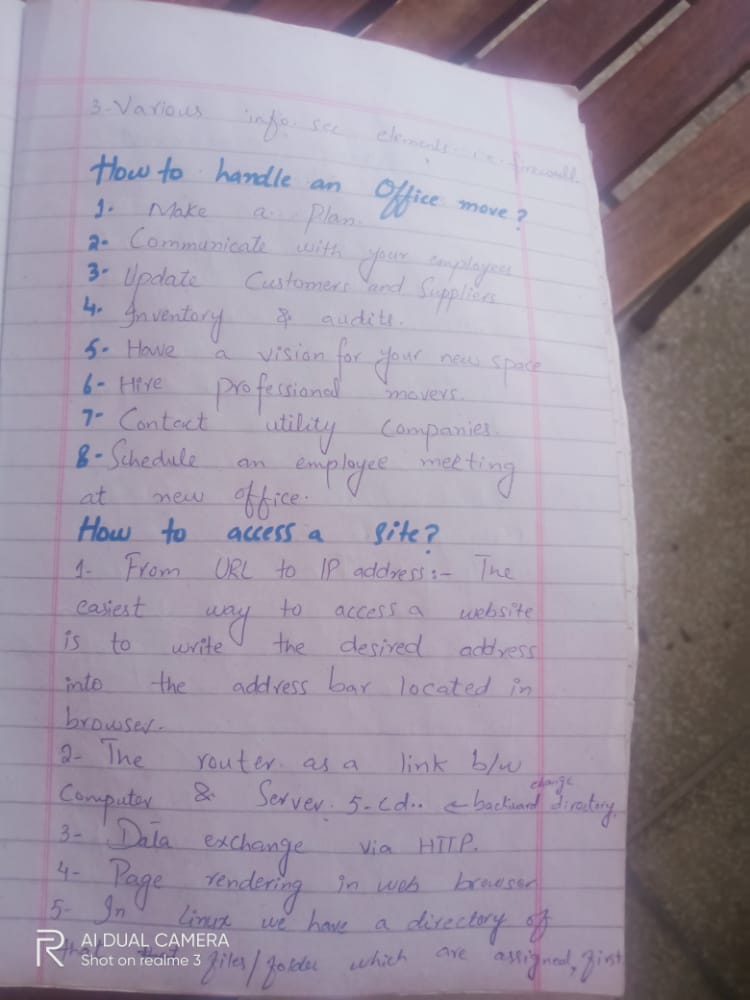 3-Various info. sec elements i.e. firewall.
How to handle an Office move?
1- Make a Plan.
2- Communicate with your employees
3- Update Customers and Suppliers
4. Inventory & audits.
5- Have a vision for your new space
6- Hire professional movers.
7- Contact utility companies.
8- Schedule an employee meeting
at new office.
How to access a site?
1- From URL to IP address:- The
easiest way to access a website
is to write the desired address
into the address bar located in
browser.
2- The router as a link b/w
change
Computer & Server. 5-cd.. ← backward directory.
3- Data exchange via HTTP.
4- Page rendering in web browser
5- In linux we have a directory of
that files/folder which are assigned, first
R AI DUAL CAMERA
Shot on realme 3